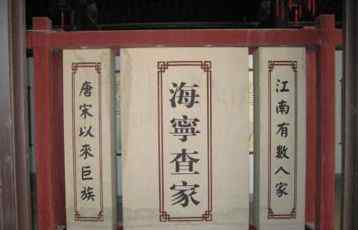 海寧查家
唐宋以來巨族
江南有數人家